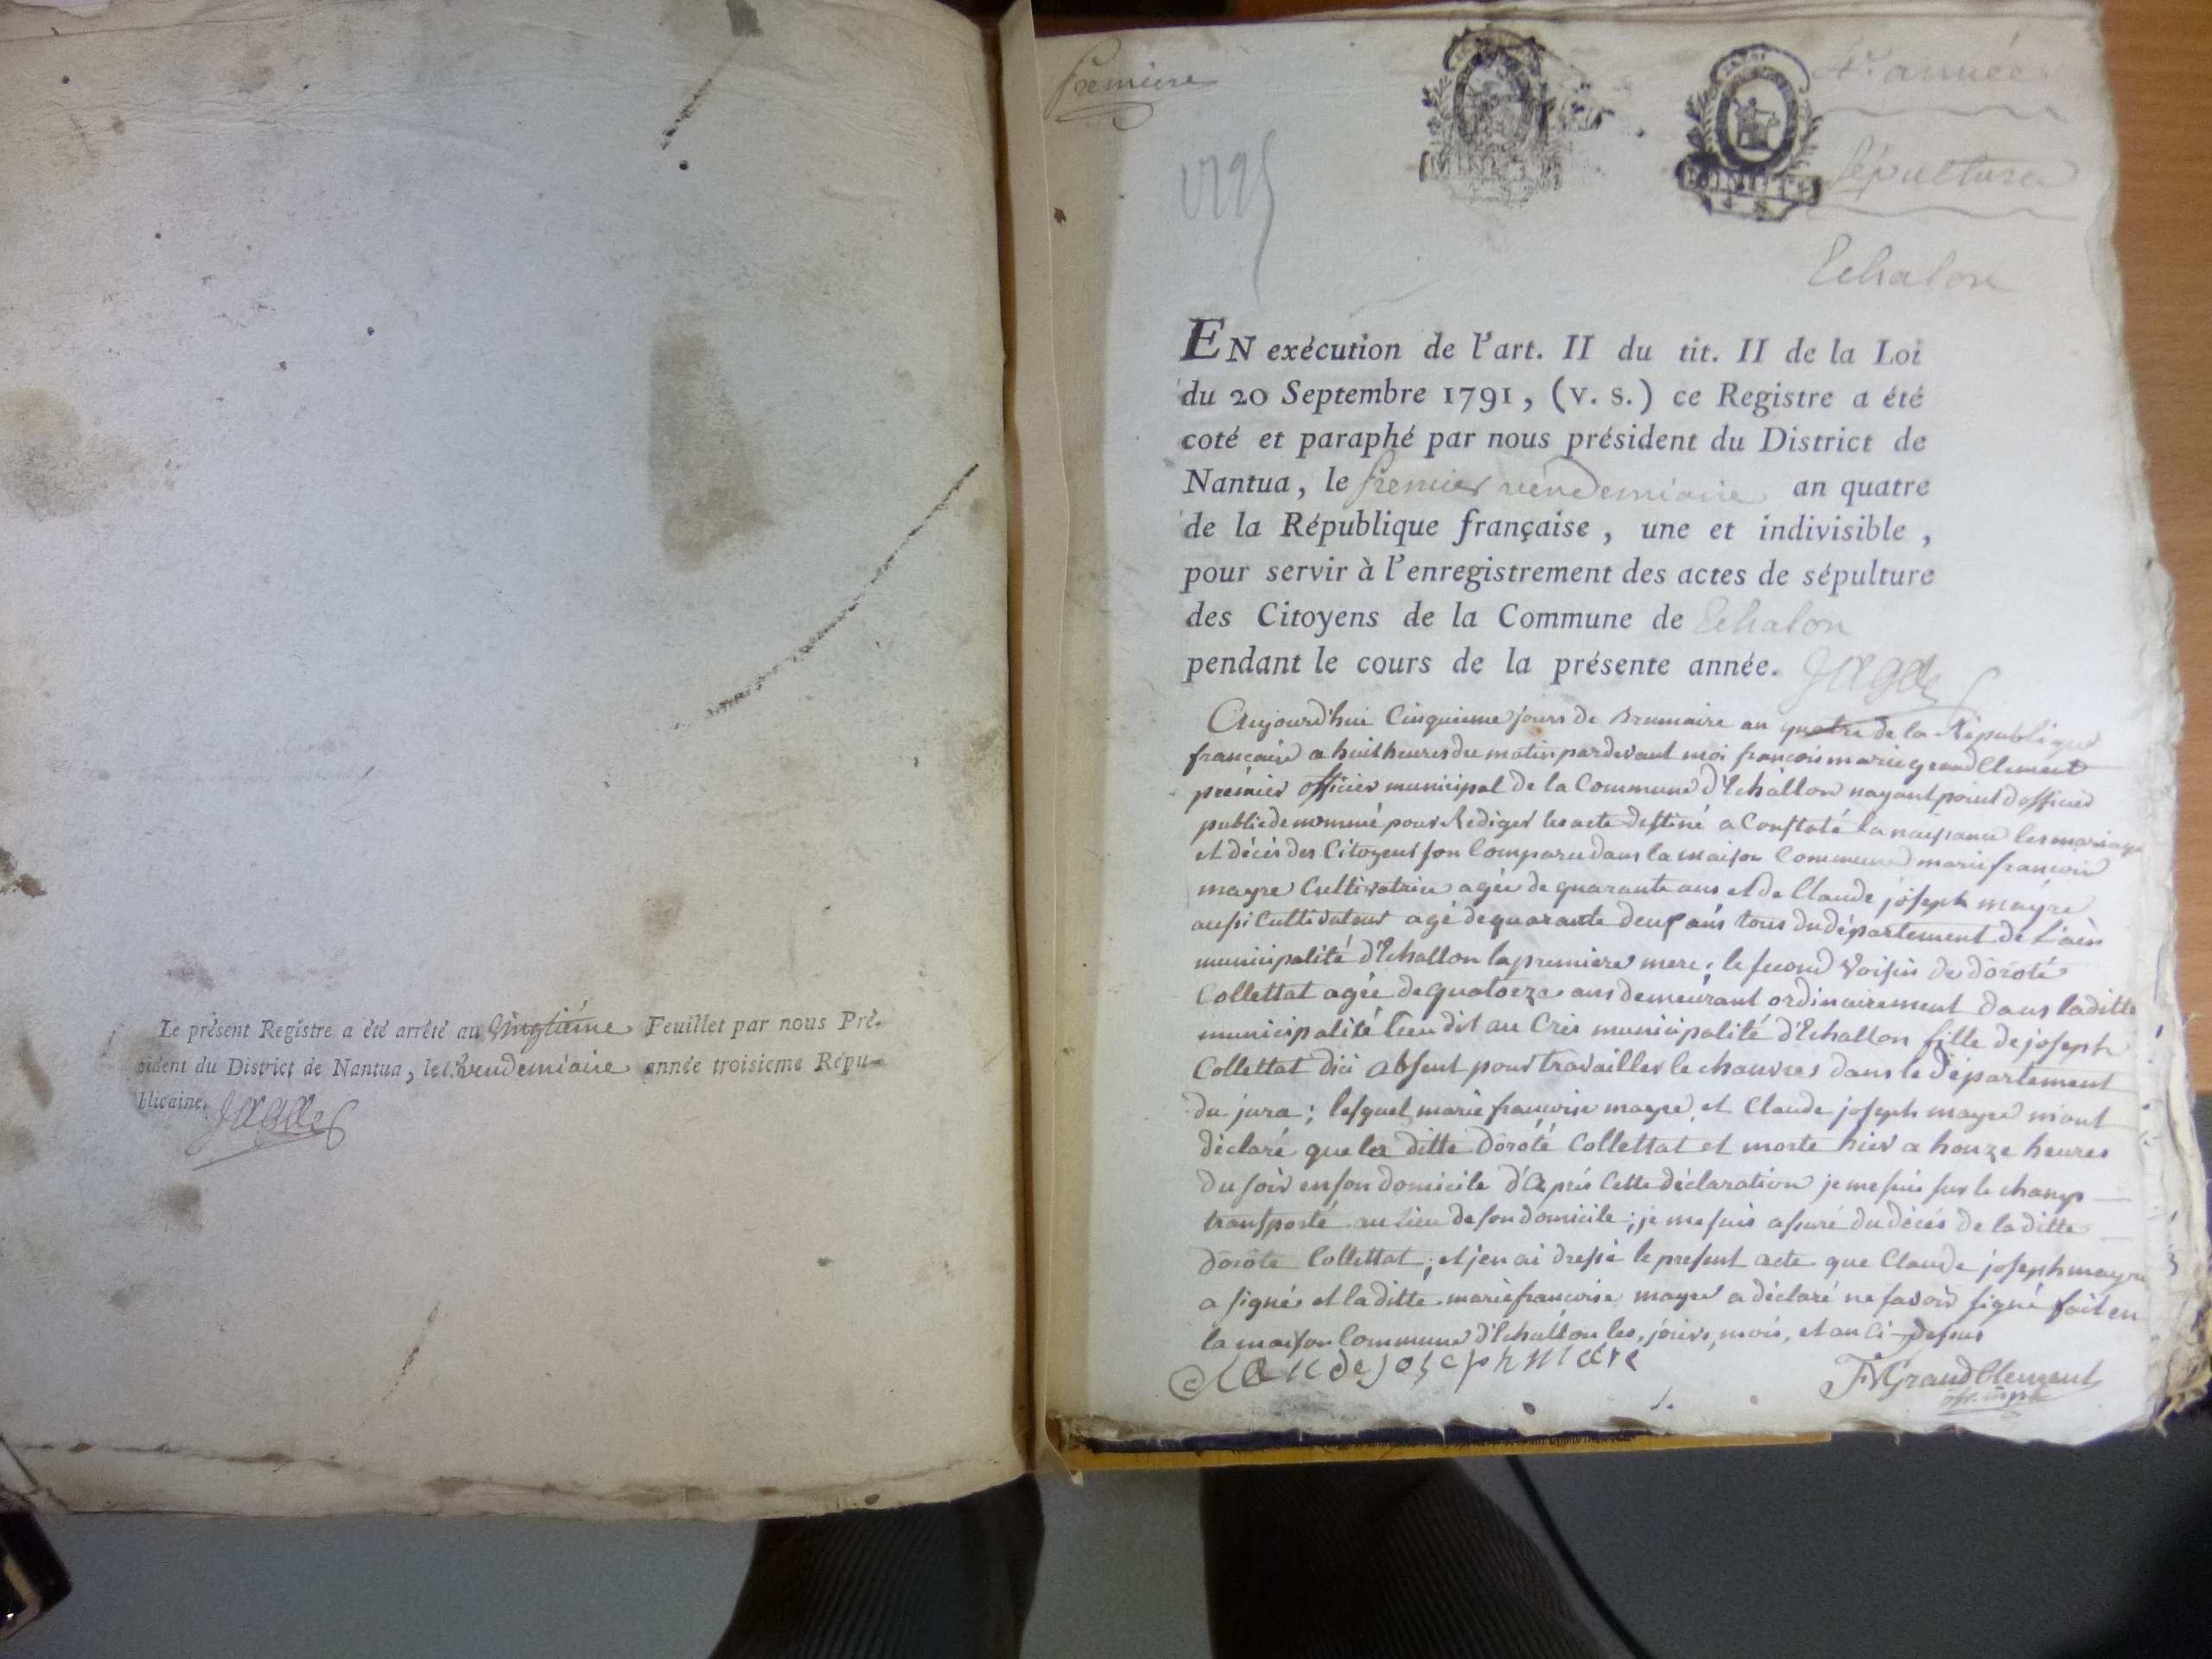 Le présent Registre a été arrêté au vingtième Feuillet par nous Pré-
sident du District de Nantua, le 1.er vendemiaire année troisieme Répu-
blicaine.
Première
1795
4e année
Sépulture
Echalon
EN exécution de l'art. II du tit. II de la Loi
du 20 Septembre 1791, (v. s.) ce Registre a été
coté et paraphé par nous président du District de
Nantua, le premier vendemiaire an quatre
de la République française, une et indivisible,
pour servir à l'enregistrement des actes de sépulture
des Citoyens de la Commune de Echalon
pendant le cours de la présente année.
Aujourd'hui Cinquieme jours de Brumaire an quatre de la République
francaise a huit heures du matin pardevant moi francois marie grandClement
prémier officier municipal de la Commune d'Echallon nayant point dofficier
public de nommé pour Rediger les acte destiné a Constaté la naissance les mariage
et décès des Citoyens son Comparu dans la maison Commune marie francoise
mayre Cultivatrice agée de quarante ans et de Claude joseph mayre
aussi Cultivateur agé de quarante deux ans tous du département de L'ain
municipalité d'Echallon la premiere mere, le second Voisin de doroté
Collettat agée de quatorze ans demeurant ordinairement dans laditte
municipalité lieu dit au Cris municipalité d'Echallon fille de joseph
Collettat dici absent pour travailler le chanvres dans le département
du jura; lesquel marie francoise mayre et Claude joseph mayre m'ont
déclaré que la ditte Doroté Collettat et morte hier a honze heures
du soir en son domicile d'après Cette déclaration je me suis sur le champ
transporté au lieu de son domicile; je me suis assuré du décés de laditte
doroté Collettat; et jen ai dressé le present acte que Claude joseph mayre
a signé et laditte marie francoise mayre a déclaré ne savoir signé fait en
la maison Commune d'Echallon les, jours, mois, et an Ci-dessus
Claude joseph maire
GrandClement